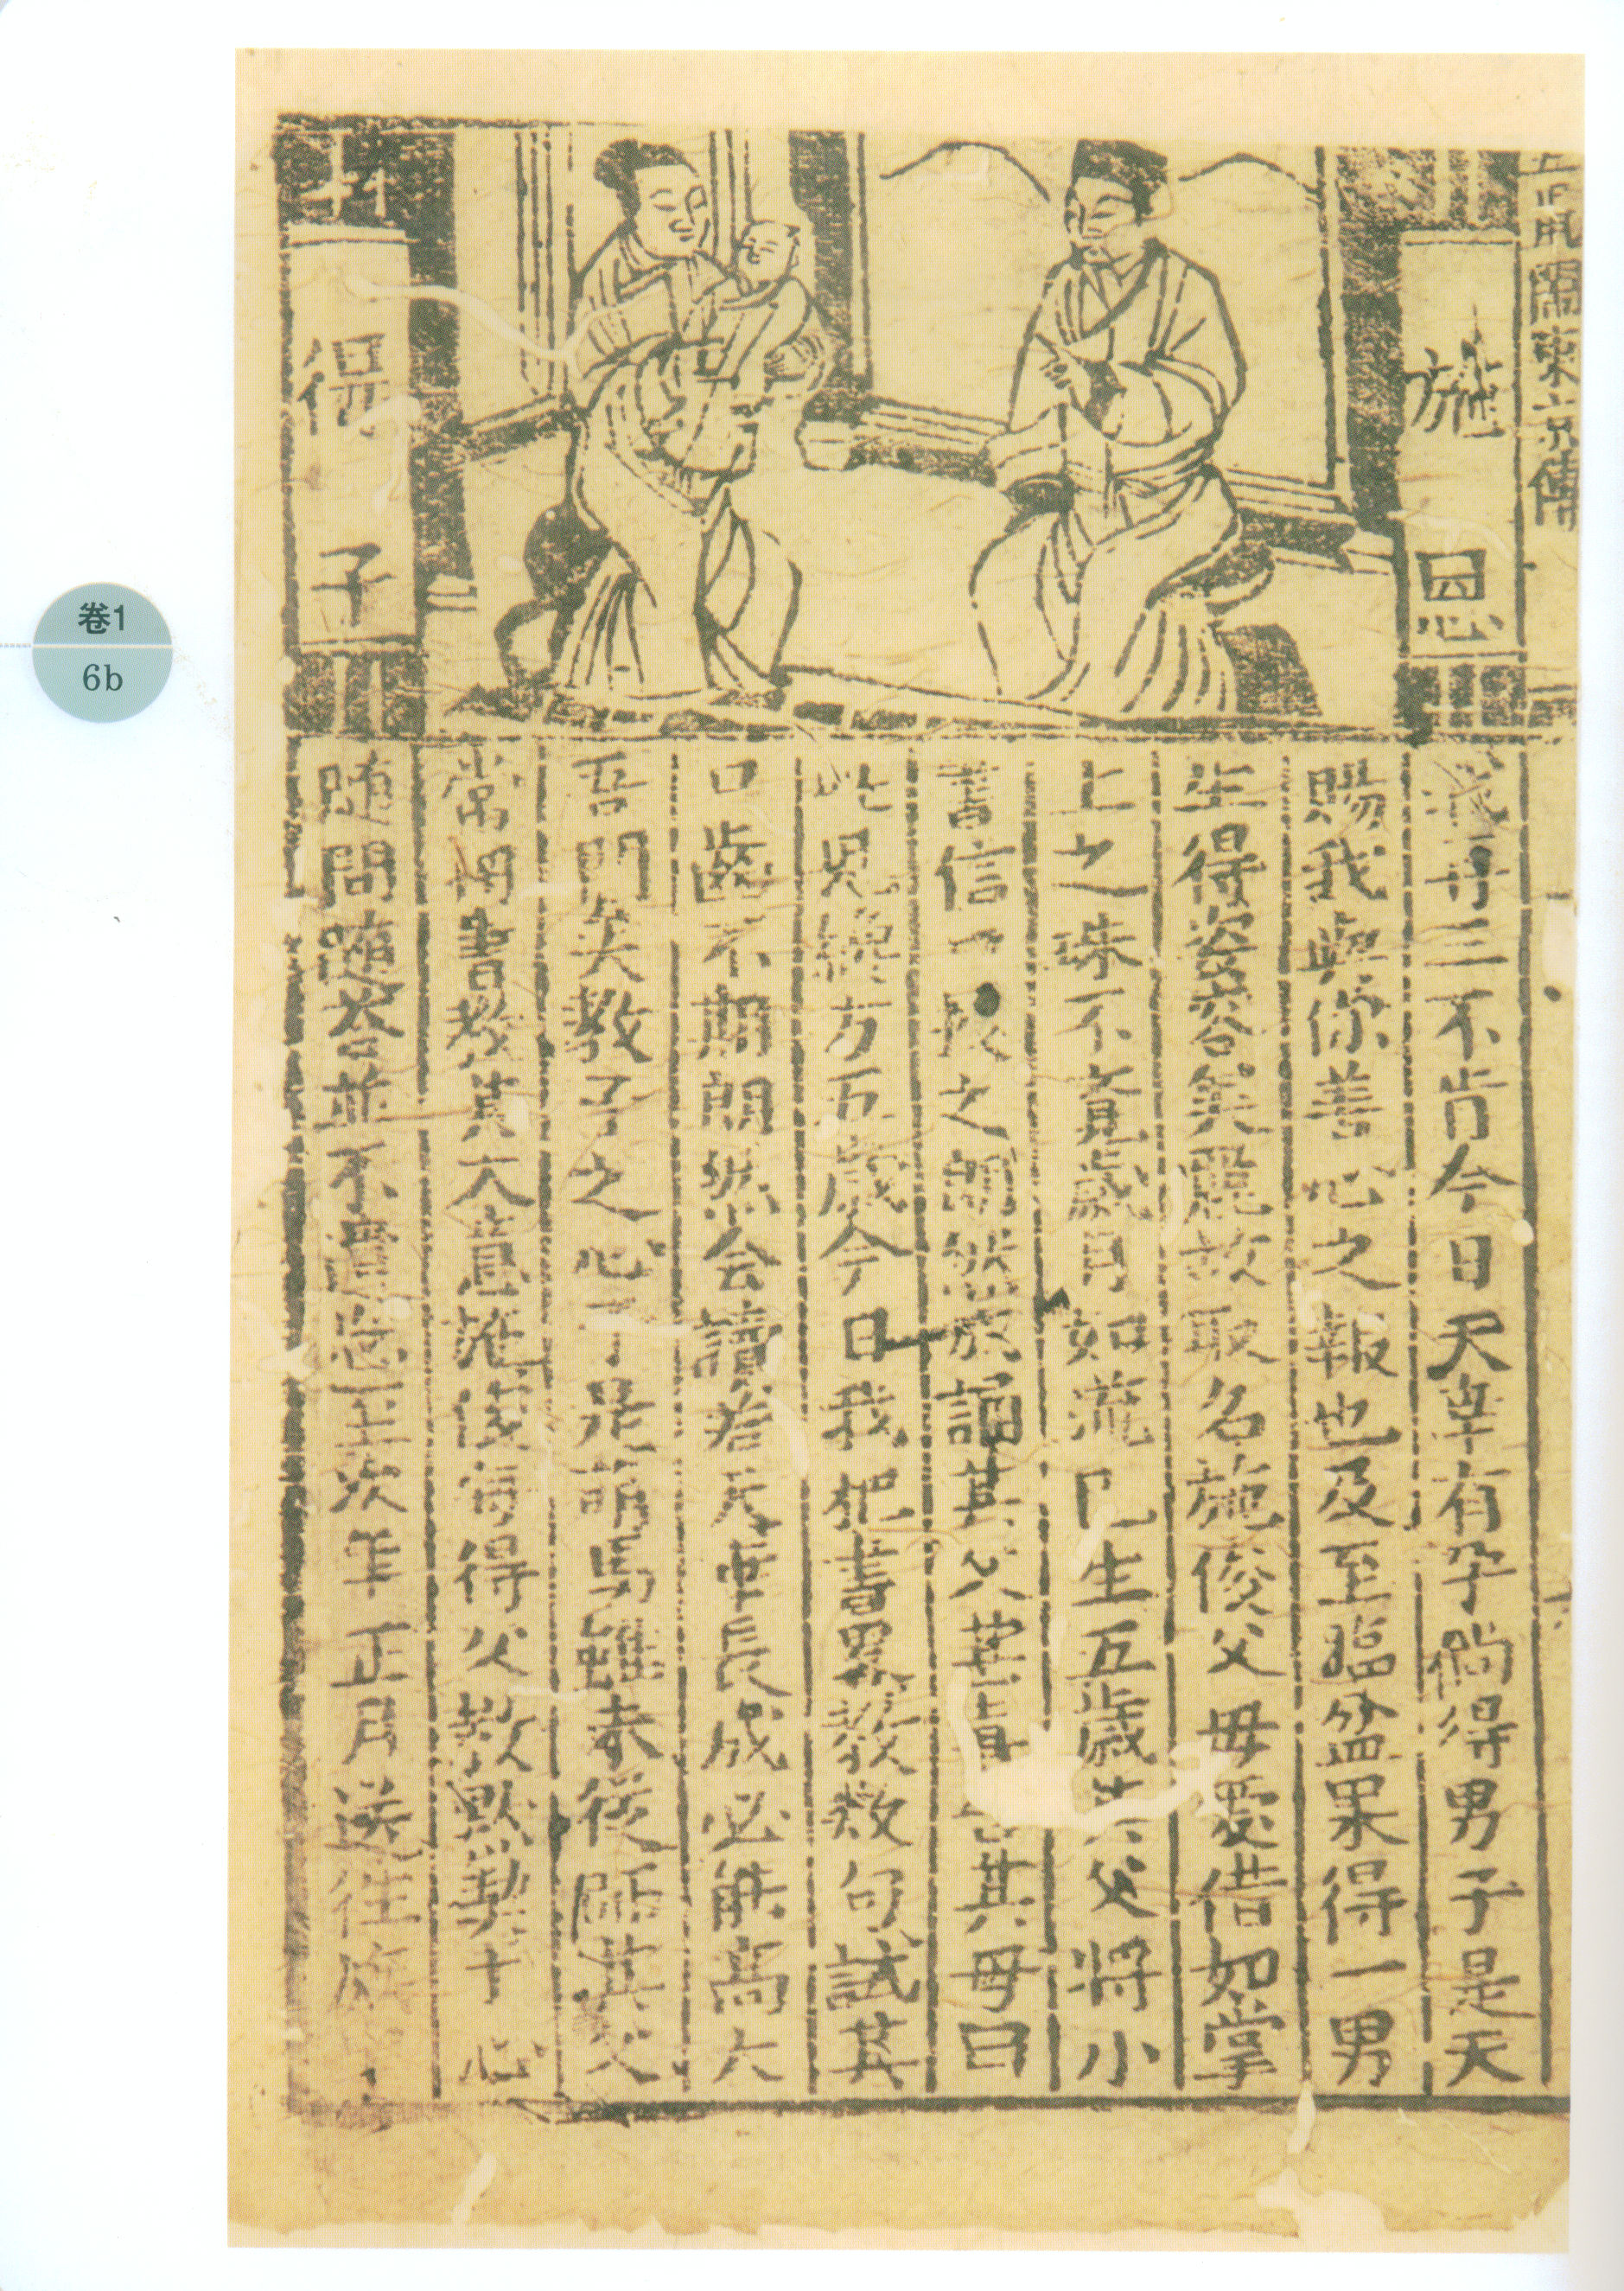 卷1
6b
五鼠鬧東京傳
施恩
得子
再三不肯今日天幸有孕倘得男子是天
賜我與你善心之報也及至臨盆果得一男
生得姿容美麗故取名施俊父毋愛惜如掌
上之珠不覺歲月如流已生五歲其父將小
書信口教之朗然成誦其父其母曰
此兒纔方五歲今日我把書畧教数句試其
口齒不期朗然会讀若天年長成必能高大
吾門矣教子之心於是謂馬離未後師其父
常用書教其大意施俊得父教默契於心
随問随答並不遺忘至次年正月送往